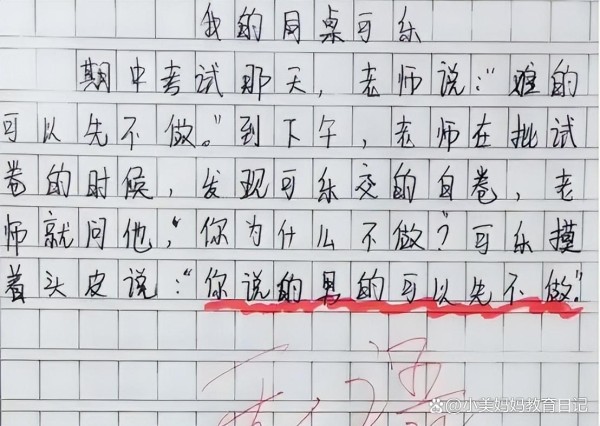 我的同桌可乐
期中考试那天，老师说：“难的
可以先不做。”到下午，老师在批试
卷的时候，发现可乐交的白卷，老
师就问他，“你为什么不做？可乐摸
着头皮说：“你说的男的可以先不做”
小美妈妈教育日记